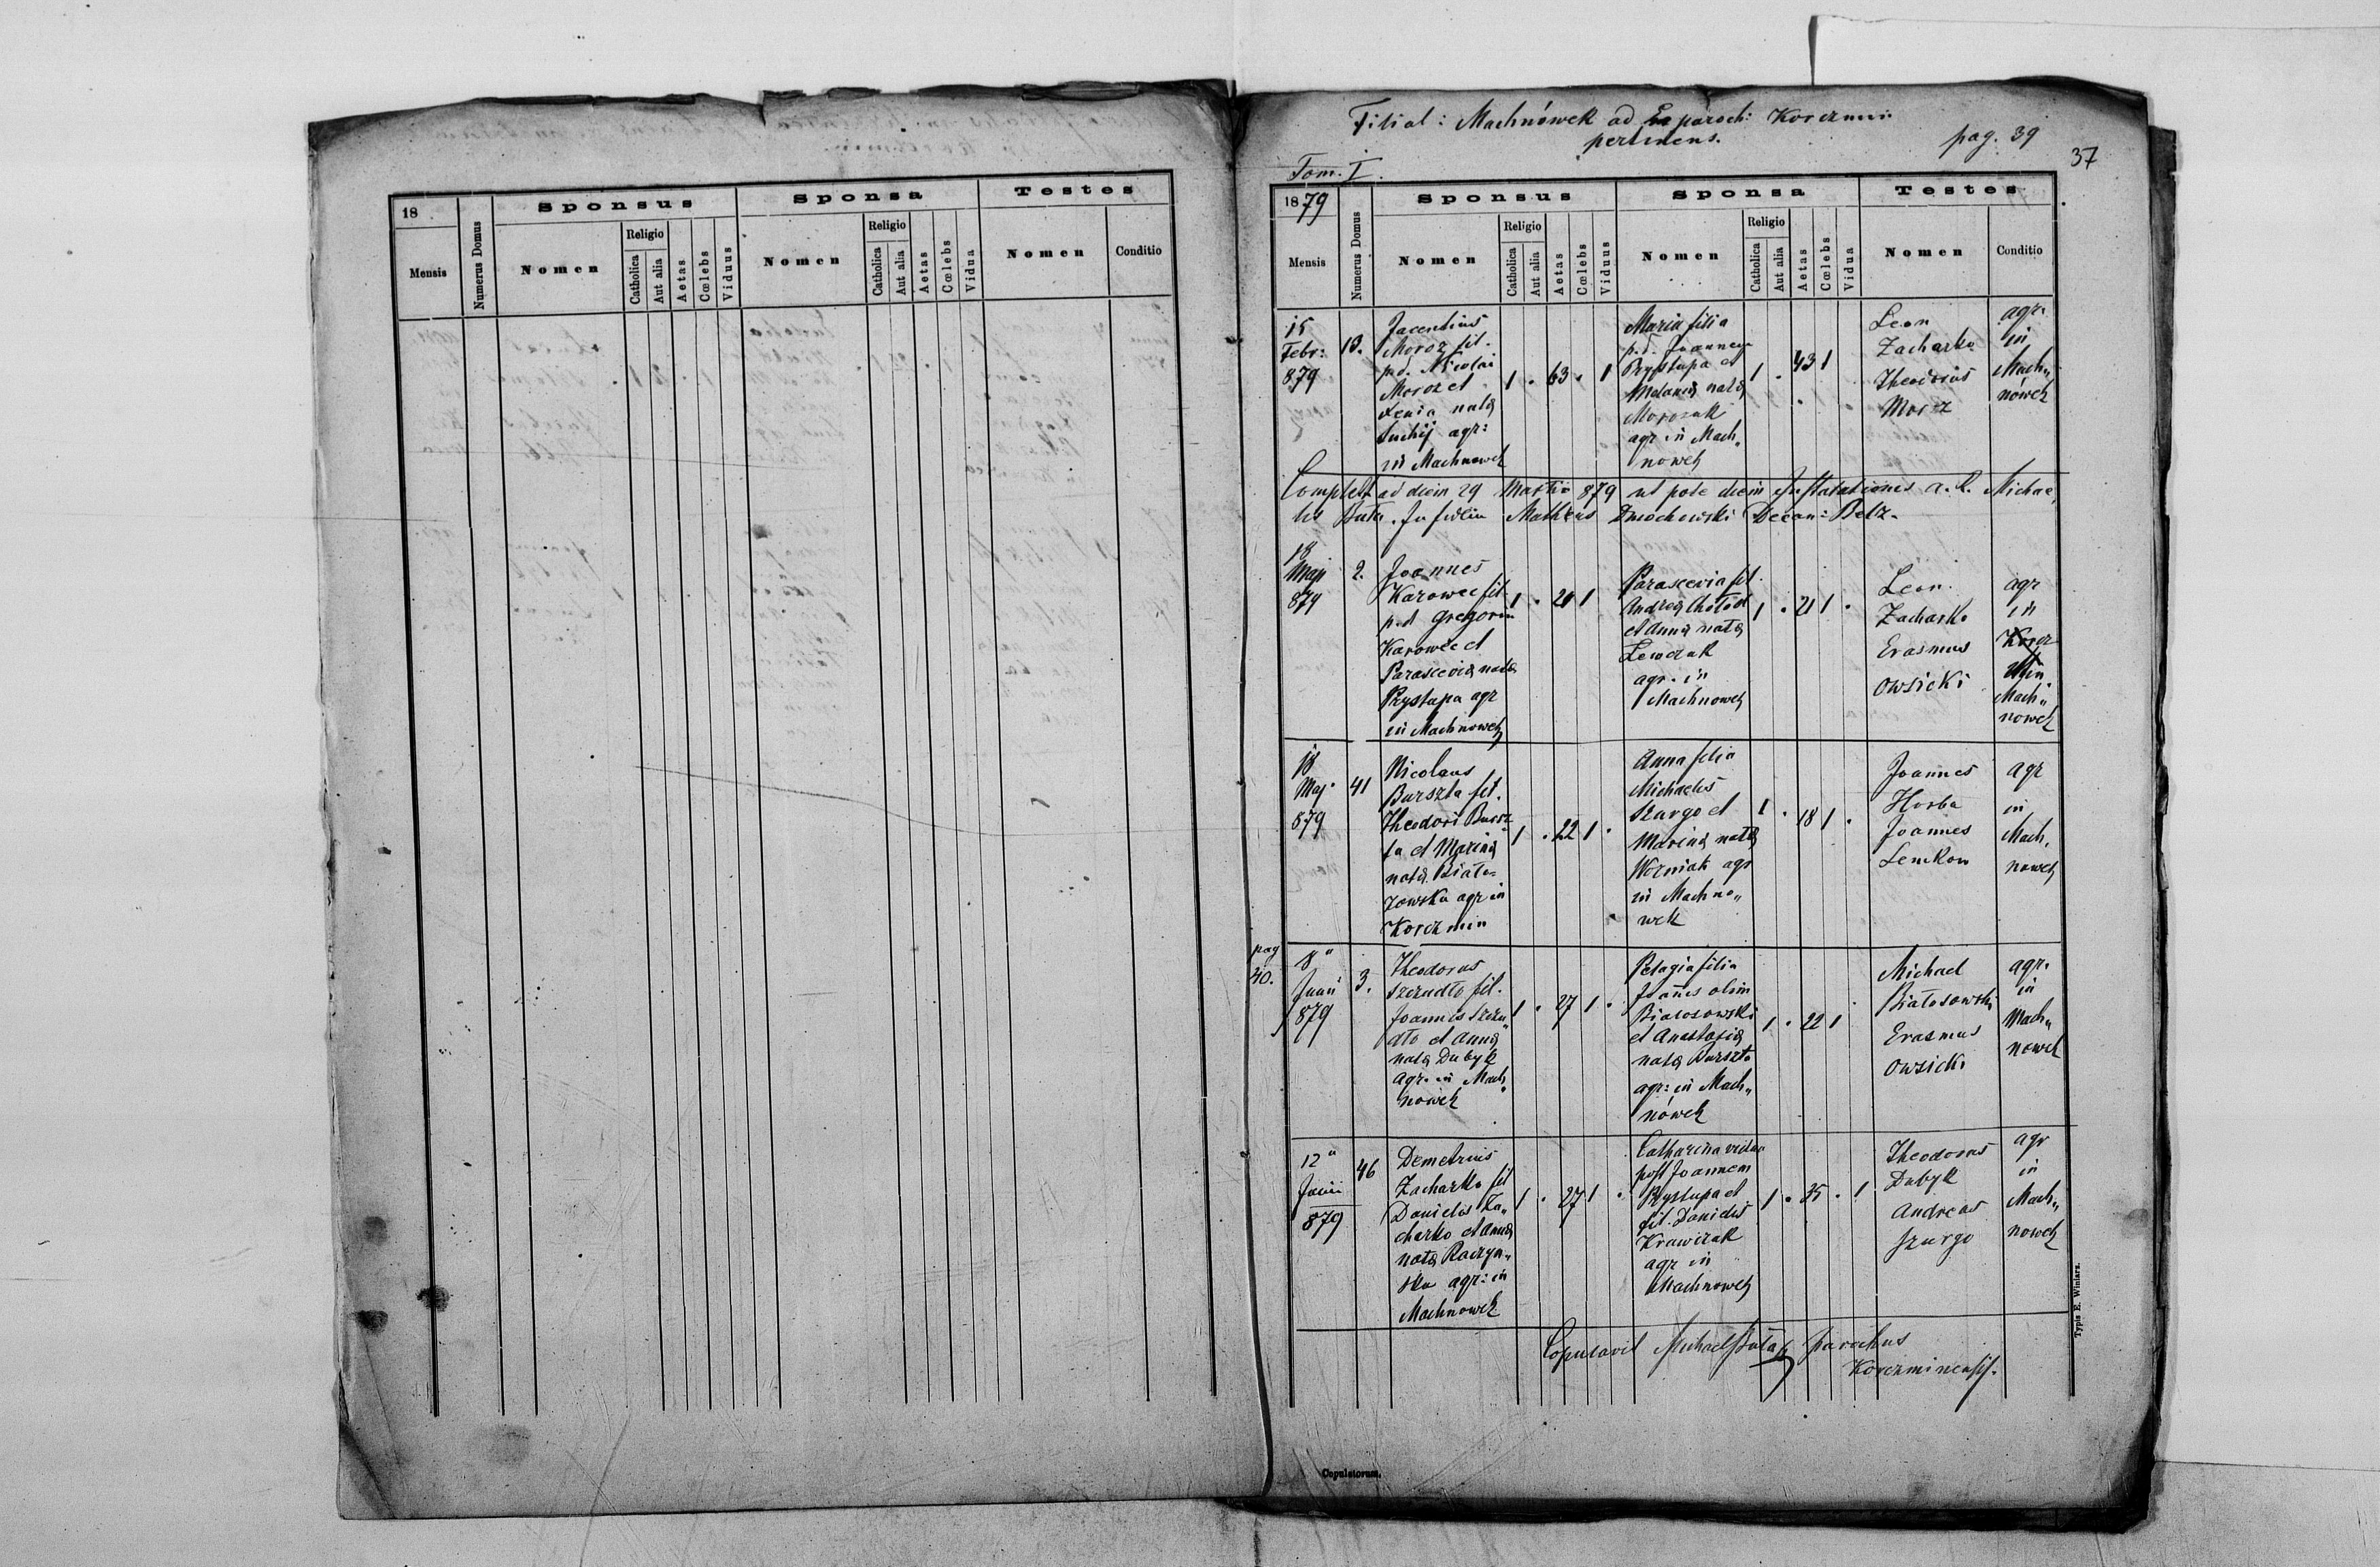 18
Sponsus
Sponsa
Testes
Mensis
Numerus Domus
Nomen
Religio
Catholica
Aut alia
Aetas
Cœlebs
Viduus
Nomen
Religio
Catholica
Aut alia
Aetas
Cœlebs
Vidua
Nomen
Conditio
Filial: Machnówek ad paroch: Korczmin
pertinens.
pag. 39
37
Tom. I.
1879
Sponsus
Sponsa
Testes
Mensis
Numerus Domus
Nomen
Religio
Catholica
Aut alia
Aetas
Cœlebs
Viduus
Nomen
Religio
Catholica
Aut alia
Aetas
Cœlebs
Vidua
Nomen
Conditio
15
Febr:
879
13.
Jacentius
Moroz fil.
p.d. Nicolai
Moroz et
Xenia nata
Suchij agr:
in Machnowek
1 . 63 . 1
Maria filia
p.d. Joannes
Przystupa et
Melania nata
Morozak
agr in Mach„
nowek
1 . 43 1 .
Leon
Zacharko
Theodorus
Moroz
agr.
in
Mach„
nówek
ad diem 29 Martii 879 ut pote diem Installationis a. R. Michae„
lis Buta. In fidem Matheus Dmochowski Decan: Belz.
18
Maji
879
2.
Joannes
Karowec fil
p.d Gregorii
Karowec et
Parascevia nata
Przystupa agr
in Machnowek
1 . 21 1
Parascevia fil.
Andrea Chołod
et Anna nata
Lewczak
agr. in
Machnowek
1 . 21 1 .
Leon
Zacharko
Erasmus
Owsicki
agr
in
Korcz
min
Mach„
nowek
18
Maj.
879
41
Nicolaus
Burszta fil.
Theodori Bursz
ta et Marina
nata Biało=
zowska agr in
Korczmin
1 . 22 1 .
Anna filia
Michaelis
Szurgo et
Marina nata
Wozniak agr
in Machno„
wek
1 . 18 1 .
Joannes
Horba
Joannes
Lenkow
agr
in
Mach„
nowek
pag
40.
8"
Junii
879
3.
Theodorus
Szczudło fil.
Joannis Szczu„
dło et Anna
nata Dubyk
agr. in Mach„
nowek
1 . 27 1 .
Pelagia filia
Joannis olim
Białosowski
et Anastasia
nata Burszta
agr: in Mach„
nówek
1 . 22 1 .
Michael
Białosowski
Erasmus
Owsicki
agr.
in
Mach„
nowek
12"
Junii
879
46
Demetrius
Zacharko fil
Danielis Za„
charko et Anna
nata Raczyn„
ska agr: in
Machnowek
1 . 27 1 .
Catharina vidua
post Joannem
Przystupa et
fil. Danielis
Krawczak
agr in
Machnowek
1 . 35 . 1
Theodorus
Dubyk
Andreas
Szurgo
agr
in
Mach„
nowek
Copulavit Michael Buta parochus
Korczminensis.
Typis E. Winiarz.
Copulatorum.